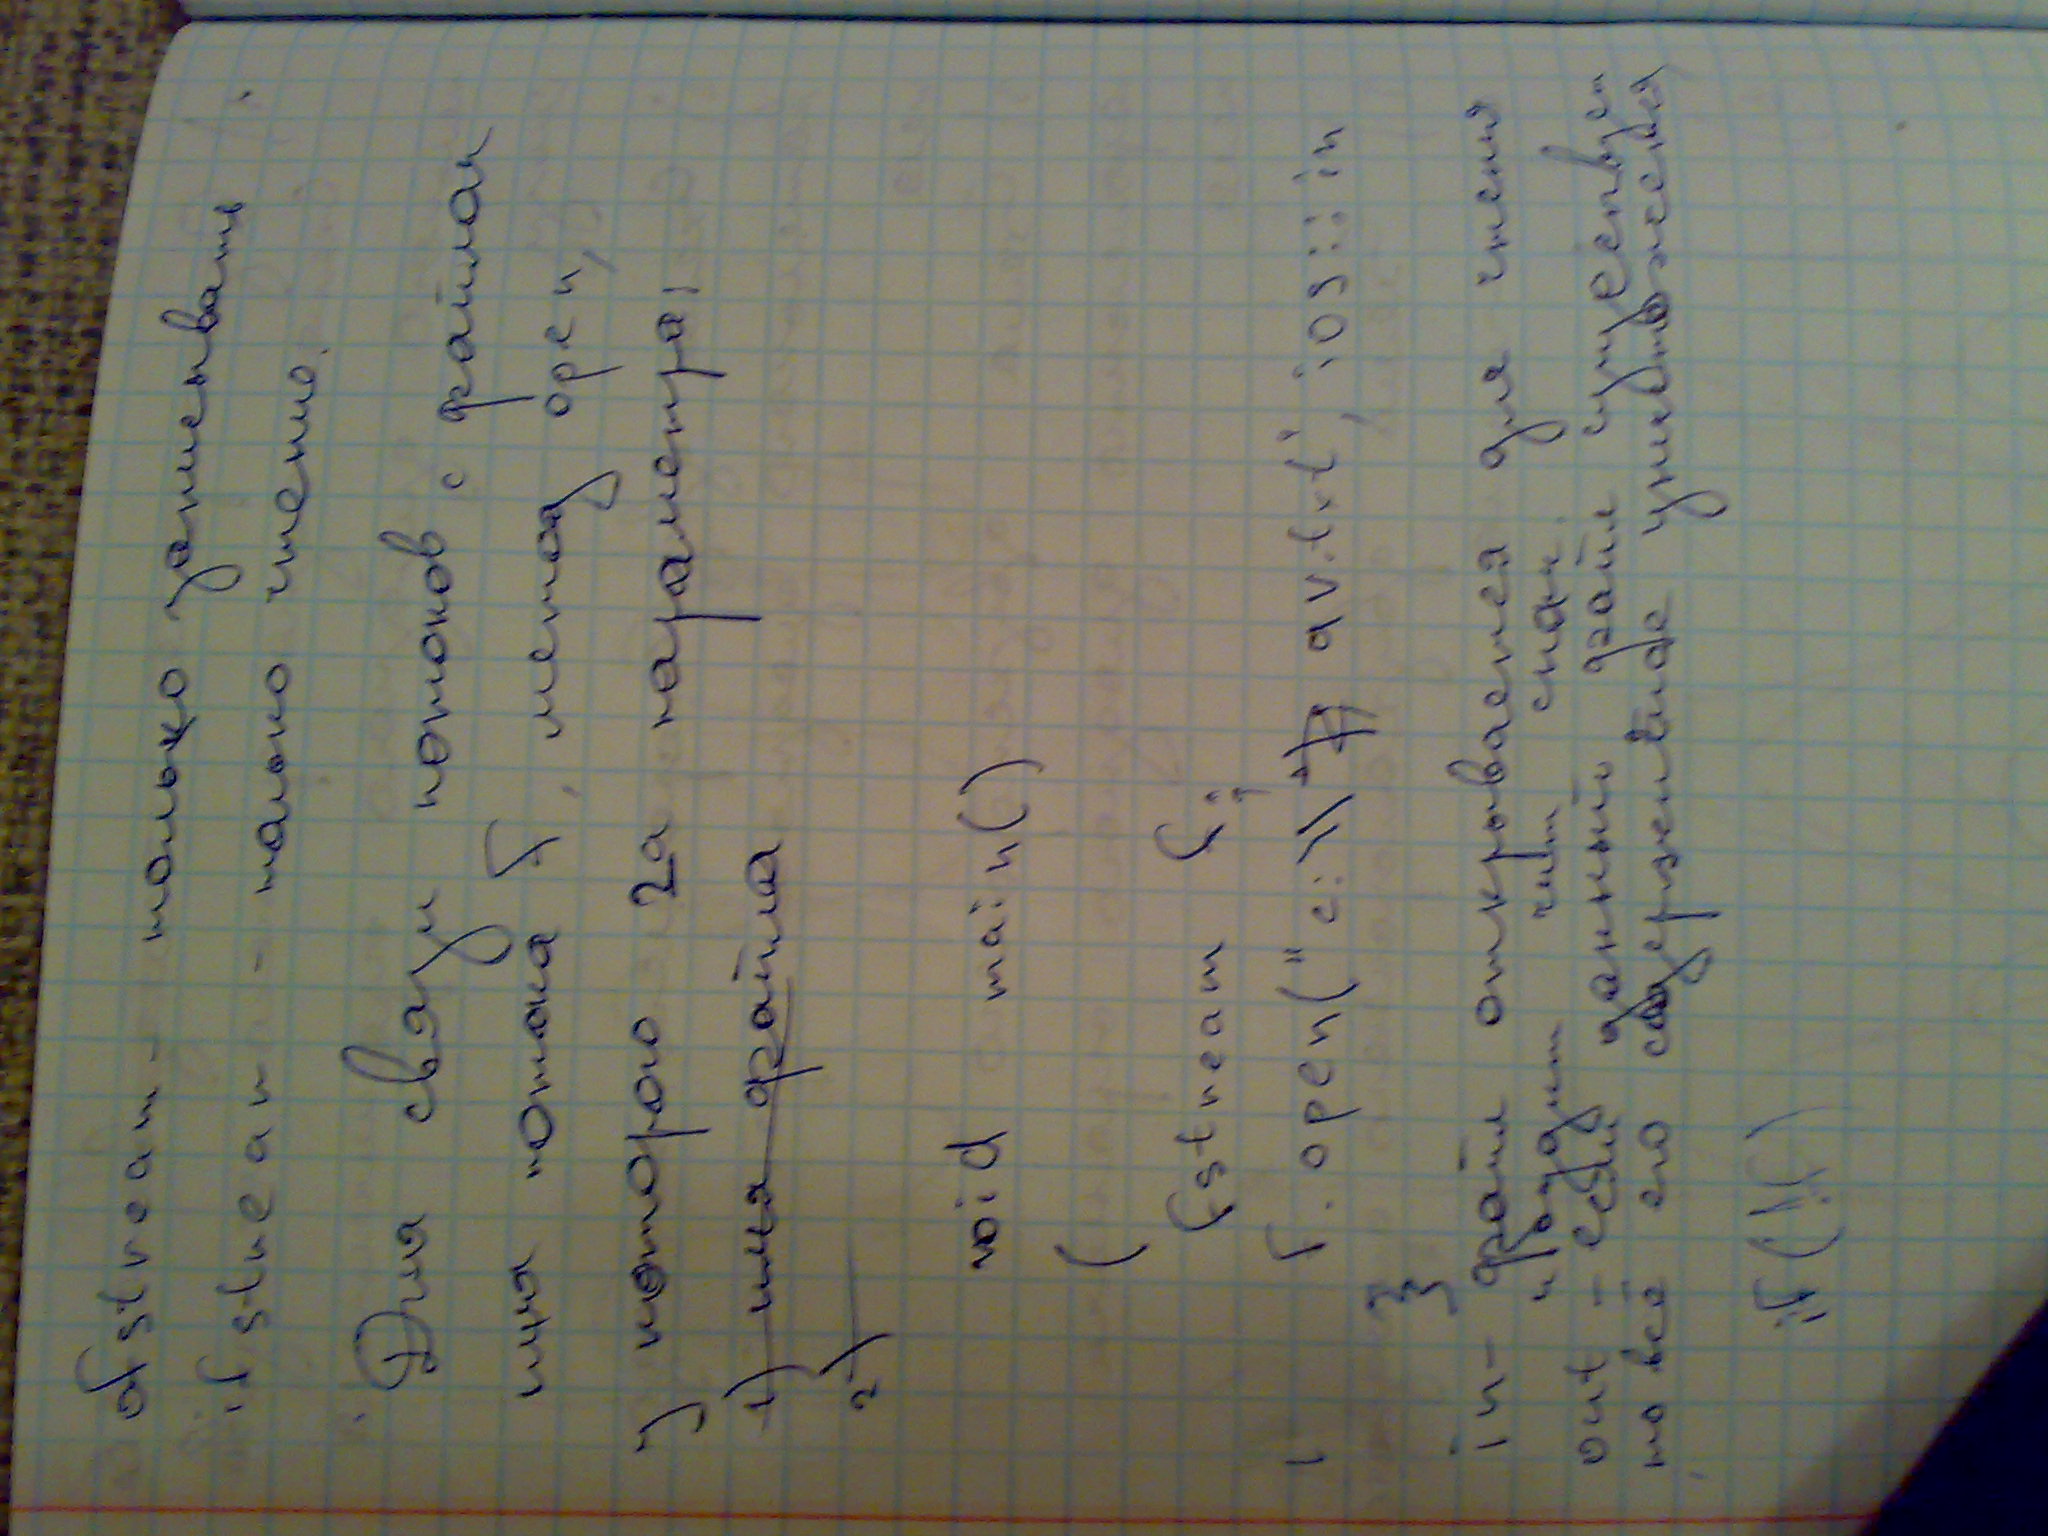 ofstream - только записывать
ifstream - только чтению.
Для связи потоков с файлом
имя потока f, метод open,
у которого 2а параметра,
1) имя файла
2)
void main()
{
fstream f;
f.open("c:\\ av.txt", ios::in
}
in - файл открывается для чтения
и чит скан.
out - если данный файл существует
то всё его содержимое уничтожется
if(!f)